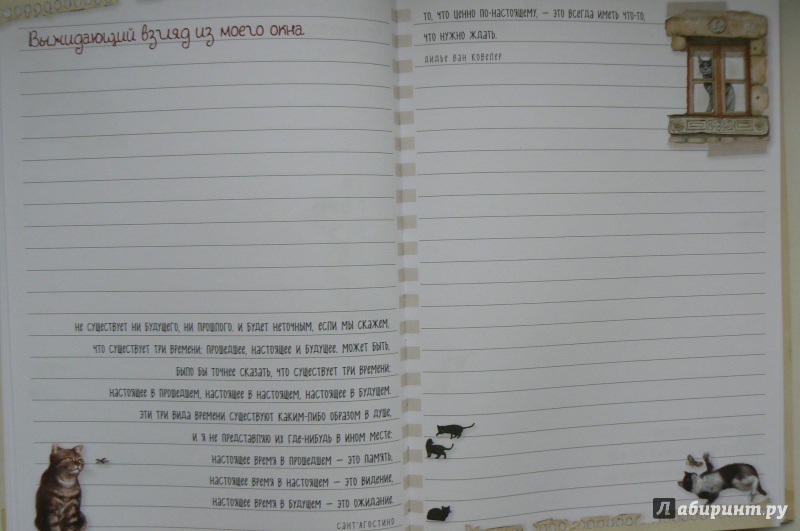 Выжидающий взгляд из моего окна
не существует ни будущего, ни прошлого. и будет неточным, если мы скажем,
что существует три времени: прошедшее, настоящее и будущее. может быть,
было бы точнее сказать, что существует три времени:
настоящее в прошедшем, настоящее в настоящем, настоящее в будущем.
эти три вида времени существуют каким-либо образом в душе,
и я не представляю их где-нибудь в ином месте:
настоящее время в прошедшем — это память,
настоящее время в настоящем — это видение,
настоящее время в будущем — это ожидание.
сант'агостино
то, что ценно по-настоящему, — это всегда иметь что-то,
что нужно ждать.
дидье ван ковелер
Лабиринт.ру